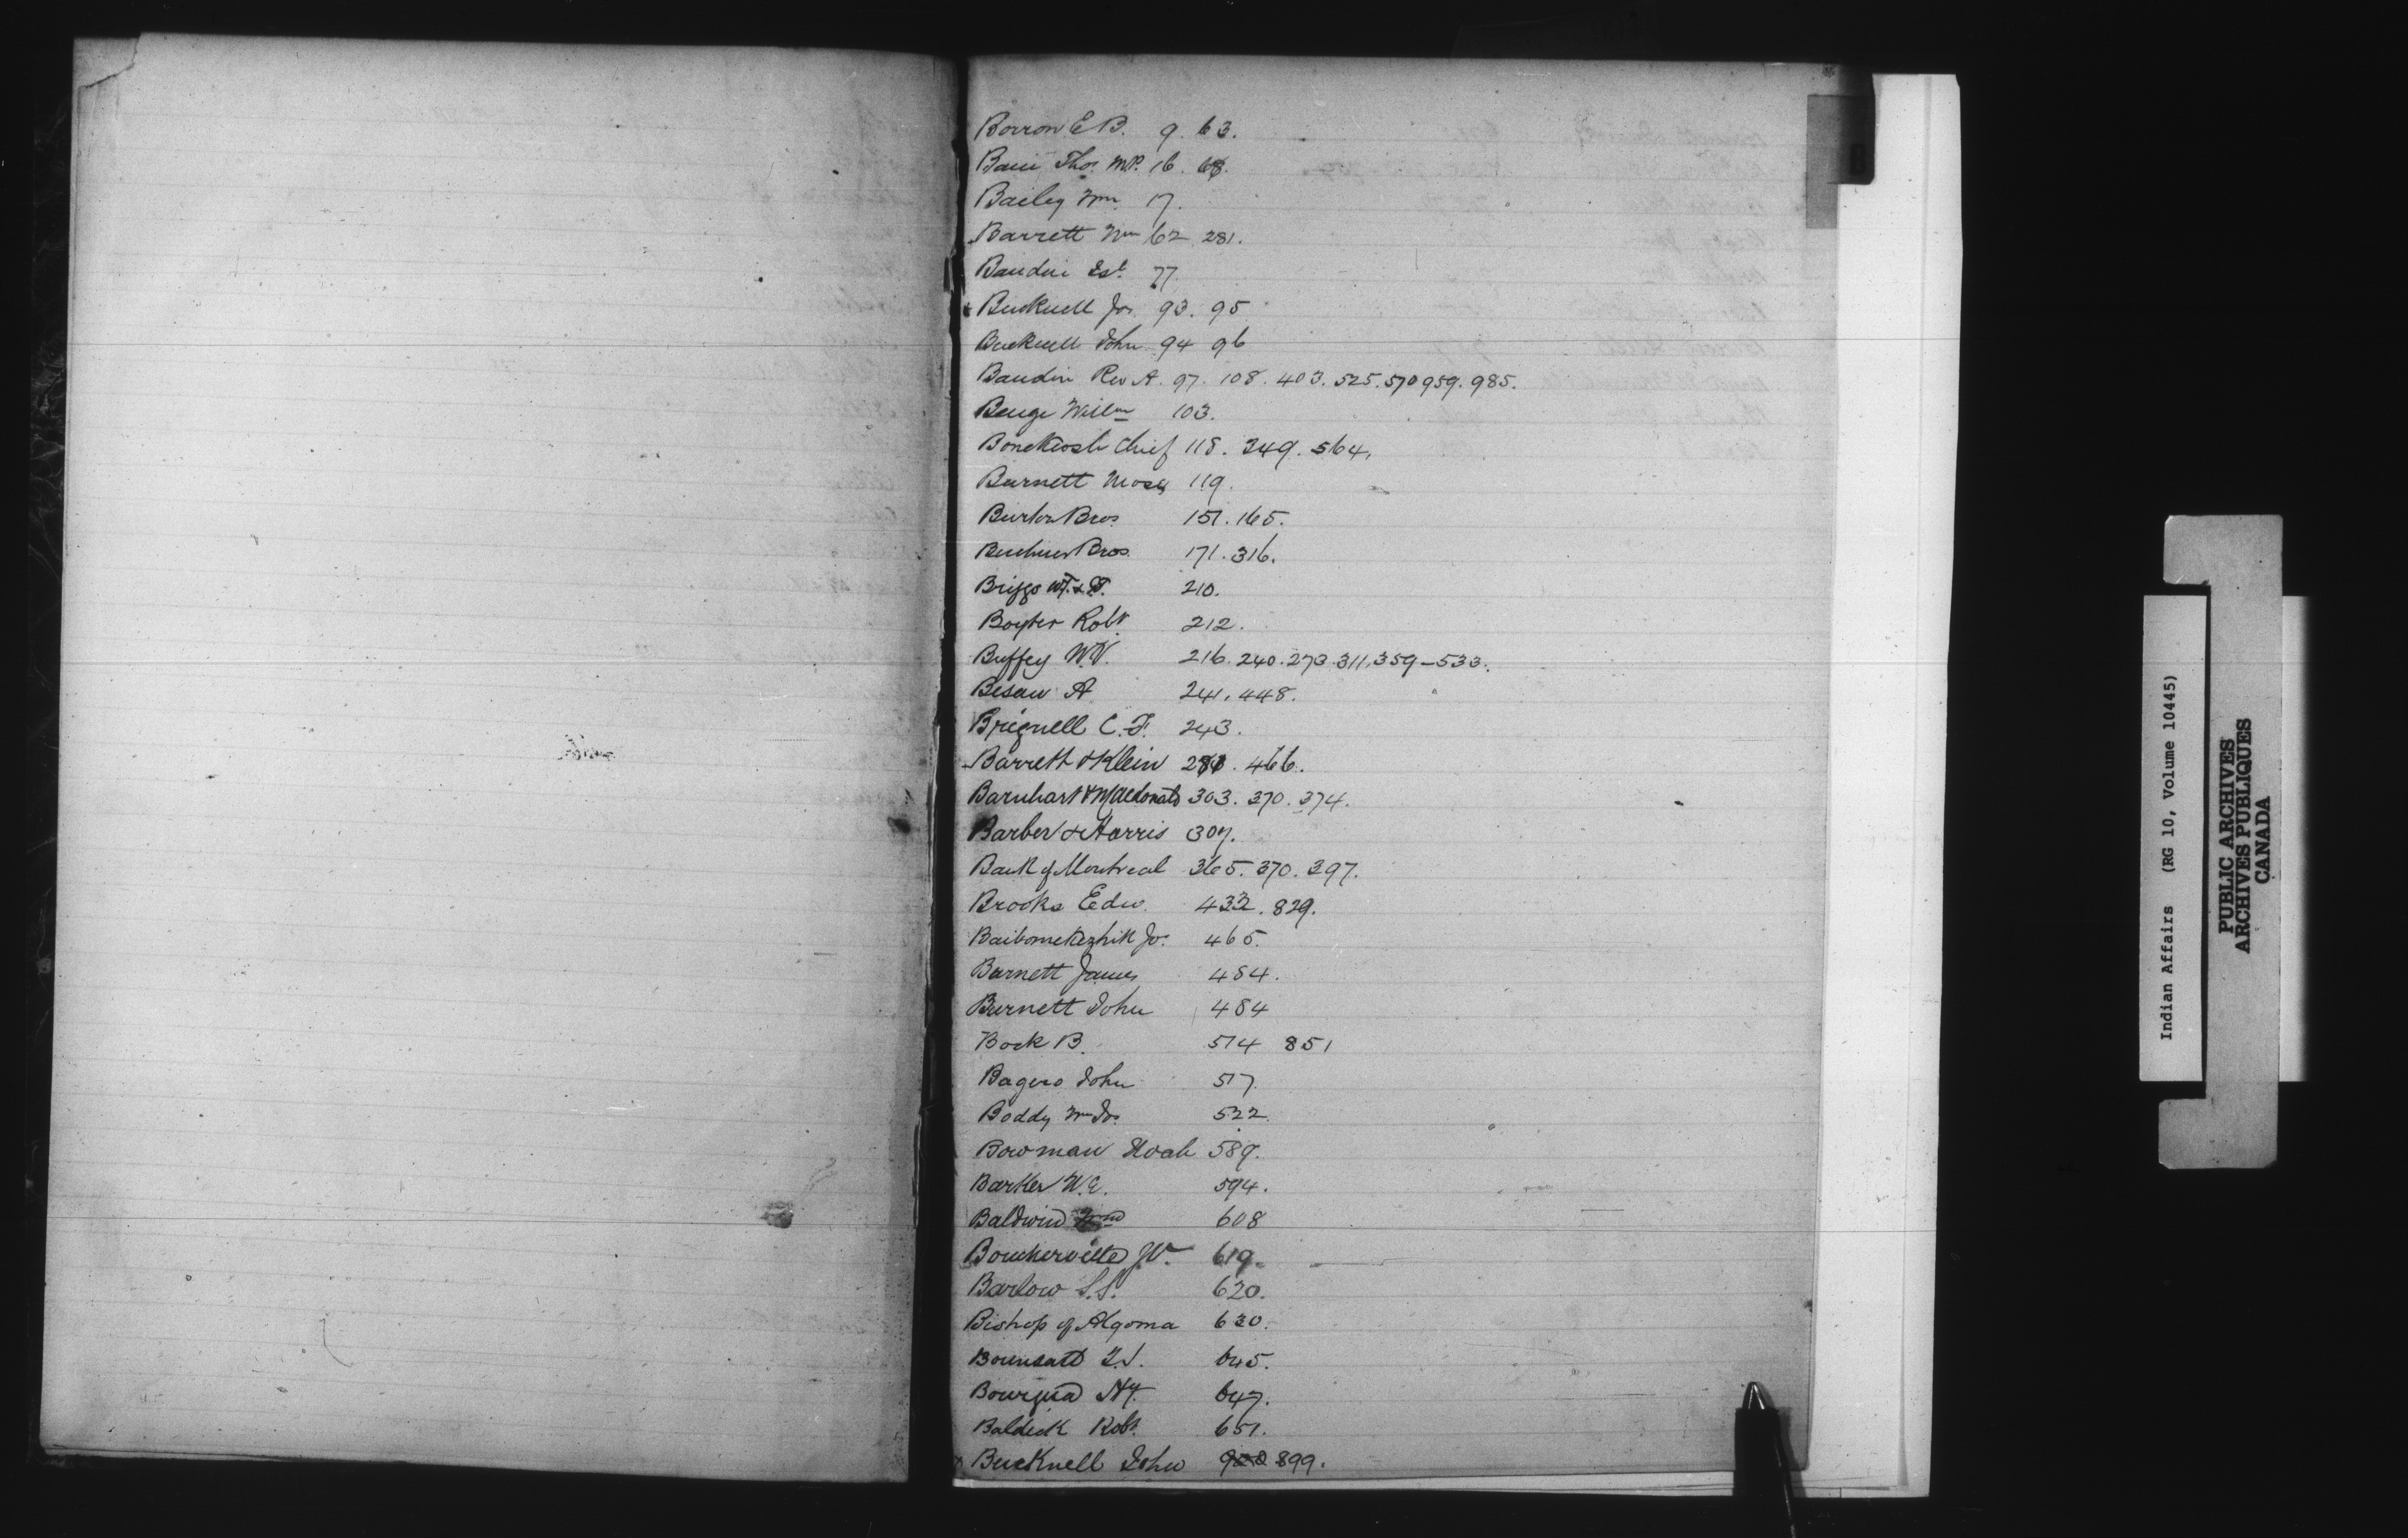 B
Borron E B. 9. 63.
Bain Thos. M.P. 16. 68.
Bailey Wm 17.
Barrett Wm 62 281.
Baudin Est. 77
Bucknell Jos. 93. 95
Bucknell John 94 96
Baudin Rev A. 97. 108. 403. 525. 570 959. 985.
Benge Willm 103.
Bonekeosh Chief 118. 249. 564.
Burnett Moses 119.
Burton Bros. 151. 165.
Buchner Bros. 171. 316.
Briggs 210.
Boyter Robt. 212.
Buffey W.V. 216. 240. 273. 311. 359-533.
Besaw A 241. 448.
Brignell C.F. 243.
Barrett & Klein 281. 466.
Barnhart & McDonald 303. 370. 374.
Barber & Harris 307.
Bank of Montreal 365. 370. 397.
Brooks Edw. 432. 829.
Baibomekezhik Jos. 465.
Burnett James 484.
Burnett John 484
Bock B. 514 851
Bagero John 517
Boddy Wm Jos. 522.
Bowman Noah 589.
Barker W.E. 594.
Baldwin Wm 608
Boucherville 619.
Barlow S.S. 620.
Bishop of Algoma 630.
Bounsall 645.
Hy. 647.
Baldick Robt. 651.
Bucknell John 900 899.
Indian Affairs (RG 10, Volume 10445)
PUBLIC ARCHIVES
ARCHIVES PUBLIQUES
CANADA